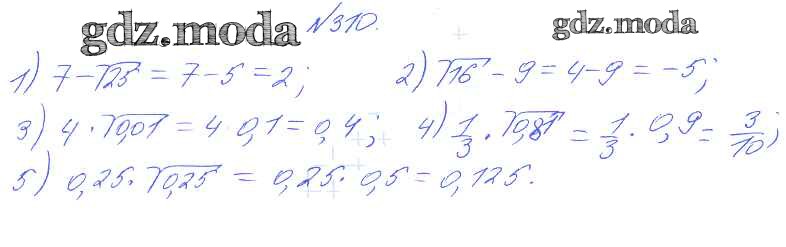 gdz.moda №310. gdz.moda
1) 7 - √25 = 7 - 5 = 2; 2) √16 - 9 = 4 - 9 = -5;
3) 4 · √0,01 = 4 · 0,1 = 0,4; 4) 1/3 · √0,81 = 1/3 · 0,9 = 3/10;
5) 0,25 · √0,25 = 0,25 · 0,5 = 0,125.